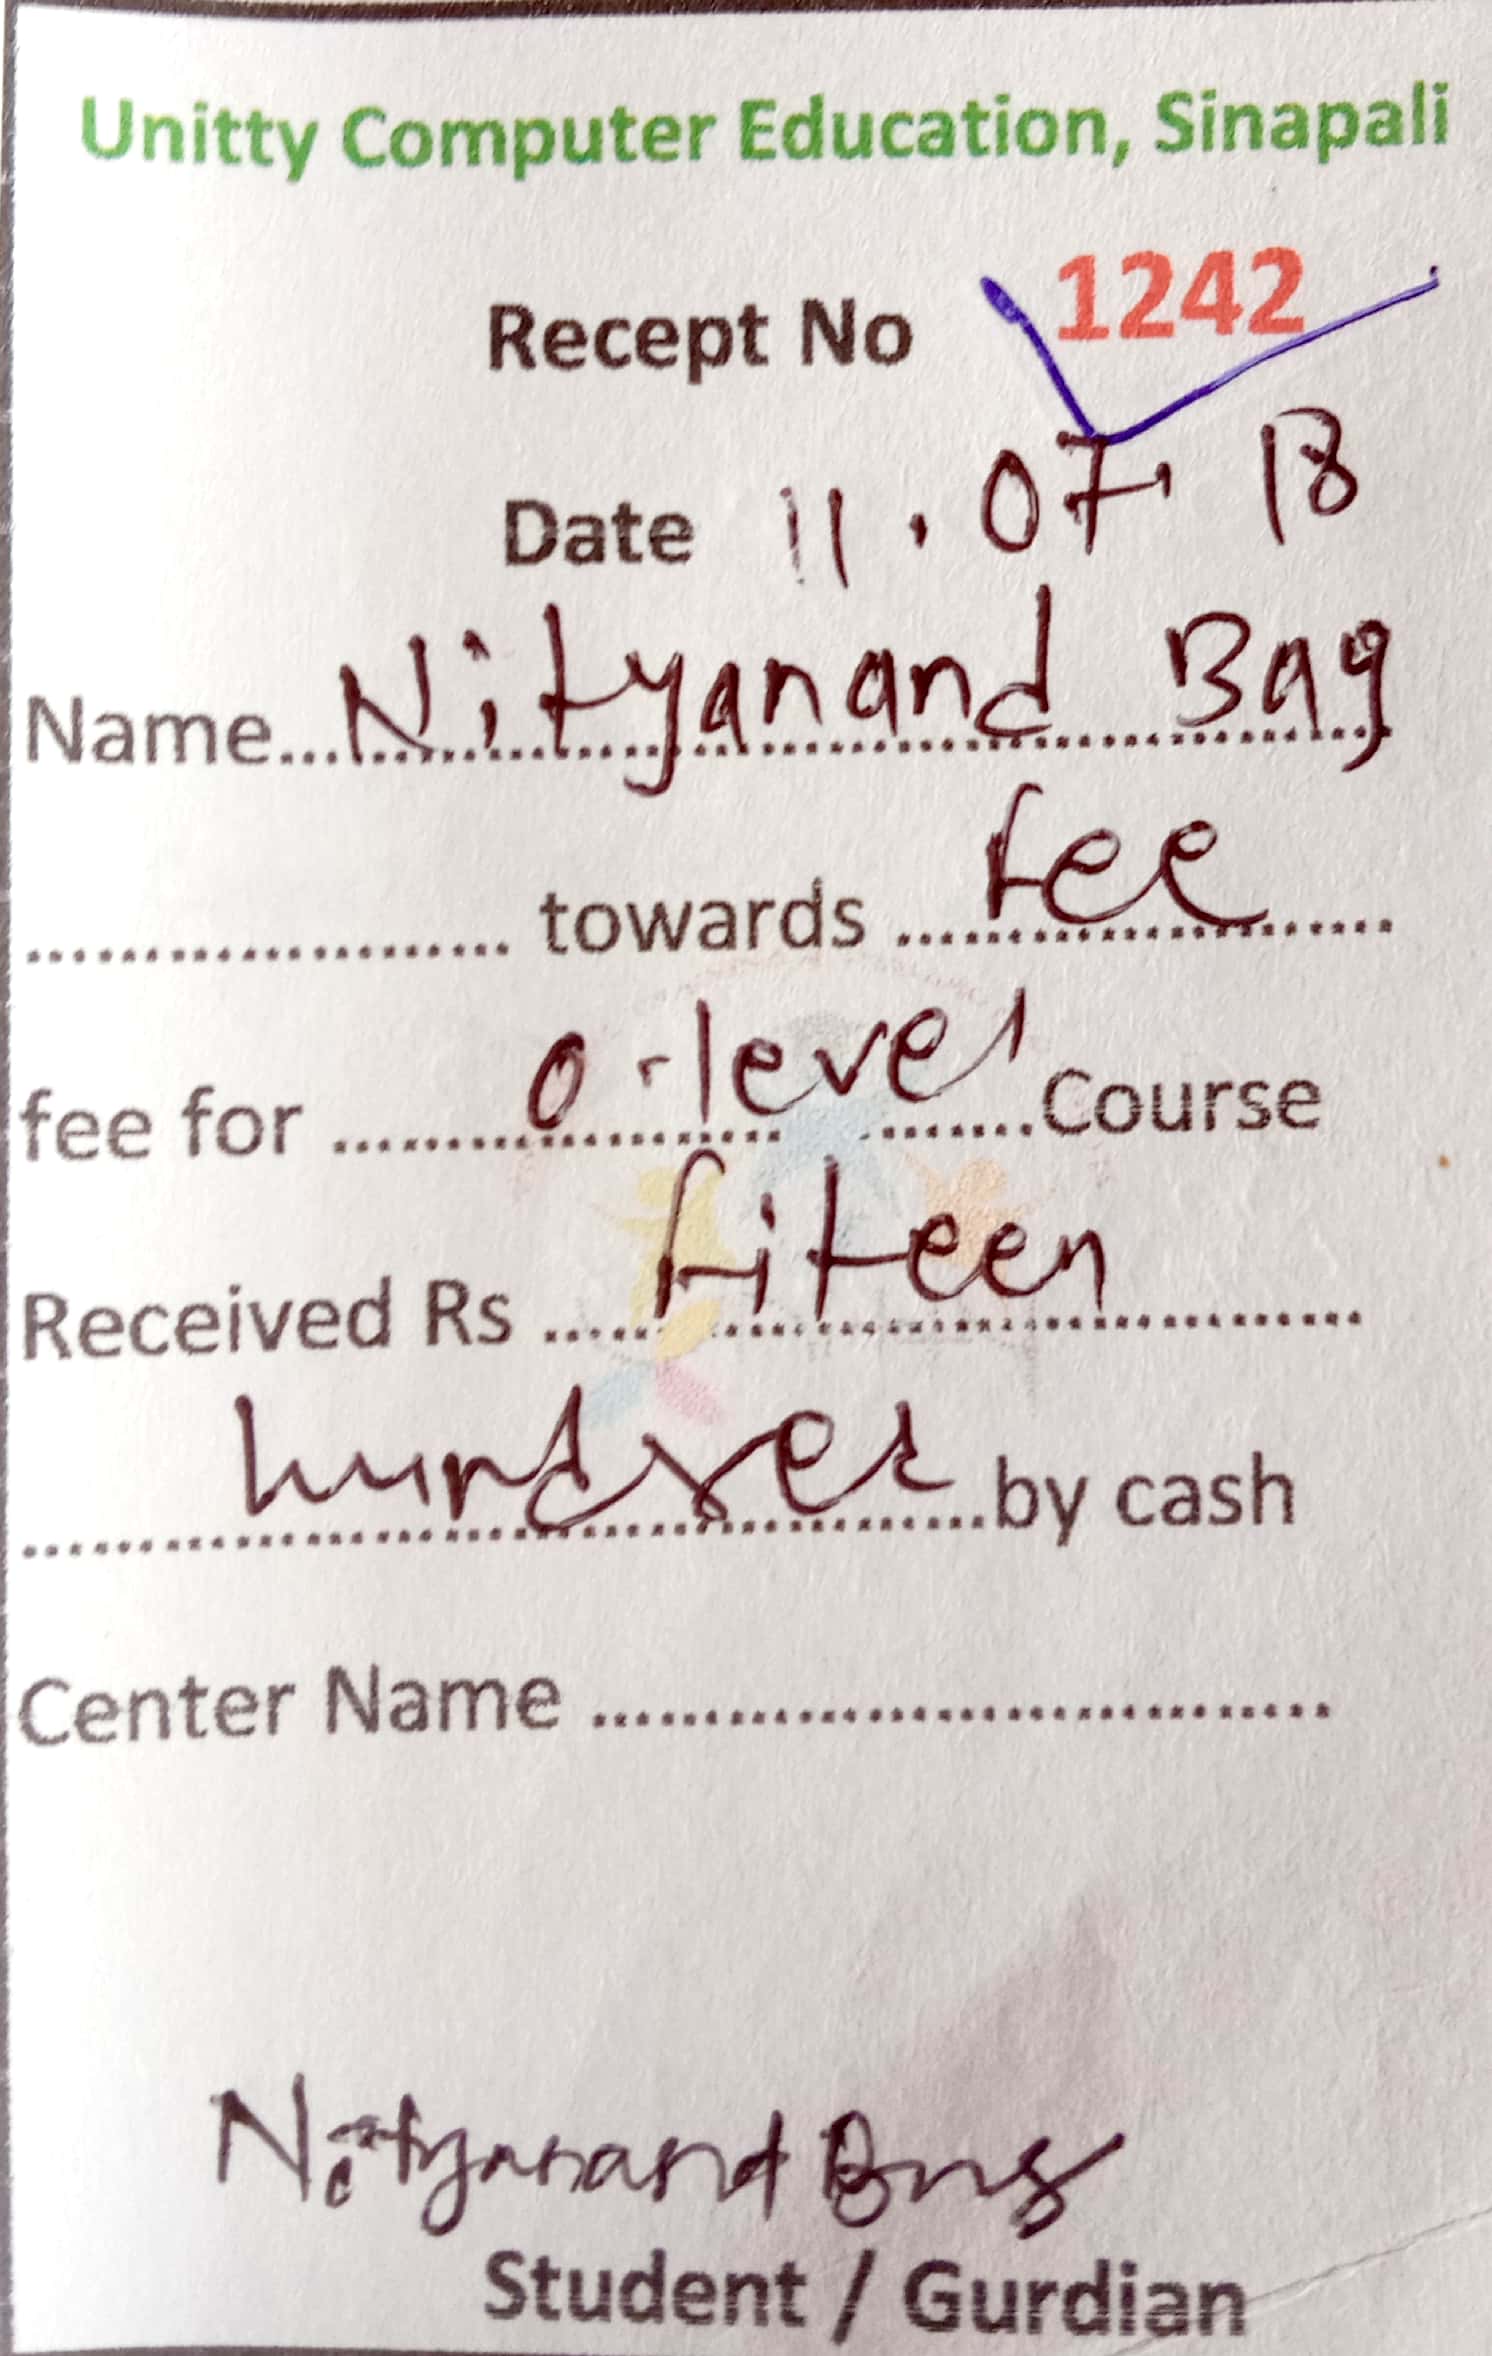 Unitty Computer Education, Sinapali
Recept No 1242
Date 11.07.18
Name...Nityanand Bag
.................... towards ....fee....
fee for ....0-level....Course
Received Rs ....fiteen....
....hundred....by cash
Center Name ....................
Nityanand Bag
Student / Gurdian